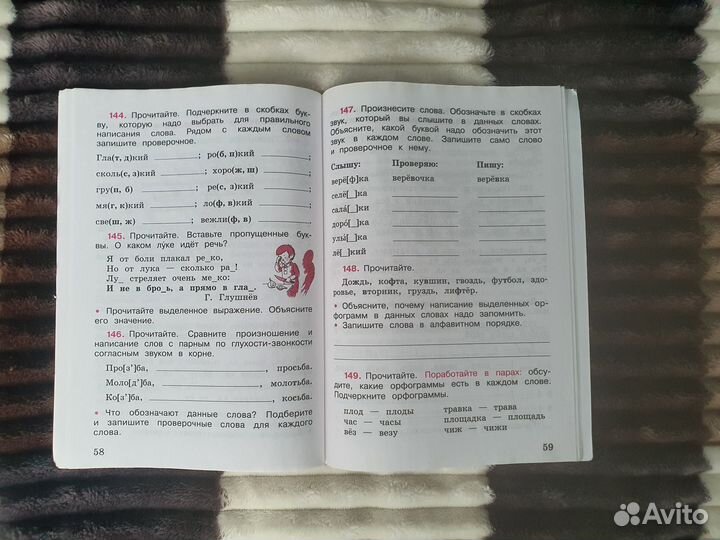 144. Прочитайте. Подчеркните в скобках бук-
ву, которую надо выбрать для правильного
написания слова. Рядом с каждым словом
запишите проверочное.
Гла(т, д)кий ; ро(б, п)кий ;
сколь(с, з)кий ; хоро(ж, ш) ;
гру(п, б) ; ре(с, з)кий ;
мя(г, к)кий ; ло(ф, в)кий ;
све(ш, ж) ; вежли(ф, в)
145. Прочитайте. Вставьте пропущенные бук-
вы. О каком луке идёт речь?
Я от боли плакал ре_ко,
Но от лука — сколько ра_!
Лу_ стреляет очень ме_ко:
И не в бро_ь, а прямо в гла_.
Г. Глушнёв
• Прочитайте выделенное выражение. Объясните
его значение.
146. Прочитайте. Сравните произношение и
написание слов с парным по глухости-звонкости
согласным звуком в корне.
Про[з’]ба, , просьба.
Моло[д’]ба, , молотьба.
Ко[з’]ба, , косьба.
• Что обозначают данные слова? Подберите
и запишите проверочные слова для каждого
слова.
58
147. Произнесите слова. Обозначьте в скобках
звук, который вы слышите в данных словах.
Объясните, какой буквой надо обозначить этот
звук в каждом слове. Запишите само слово
и проверочное к нему.
Слышу: Проверяю: Пишу:
верё[ф]ка верёвочка верёвка
селё[_]ка
сала́[_]ки
доро́[_]ка
улы́[_]ка
лё[_]кий
148. Прочитайте.
Дождь, кофта, кувшин, гвоздь, футбол, здо-
ровье, вторник, груздь, лифтёр.
• Объясните, почему написание выделенных ор-
фограмм в данных словах надо запомнить.
• Запишите слова в алфавитном порядке.
149. Прочитайте. Поработайте в парах: обсу-
дите, какие орфограммы есть в каждом слове.
Подчеркните орфограммы.
плод — плоды травка — трава
час — часы площадка — площадь
вёз — везу чиж — чижи
59
Avito